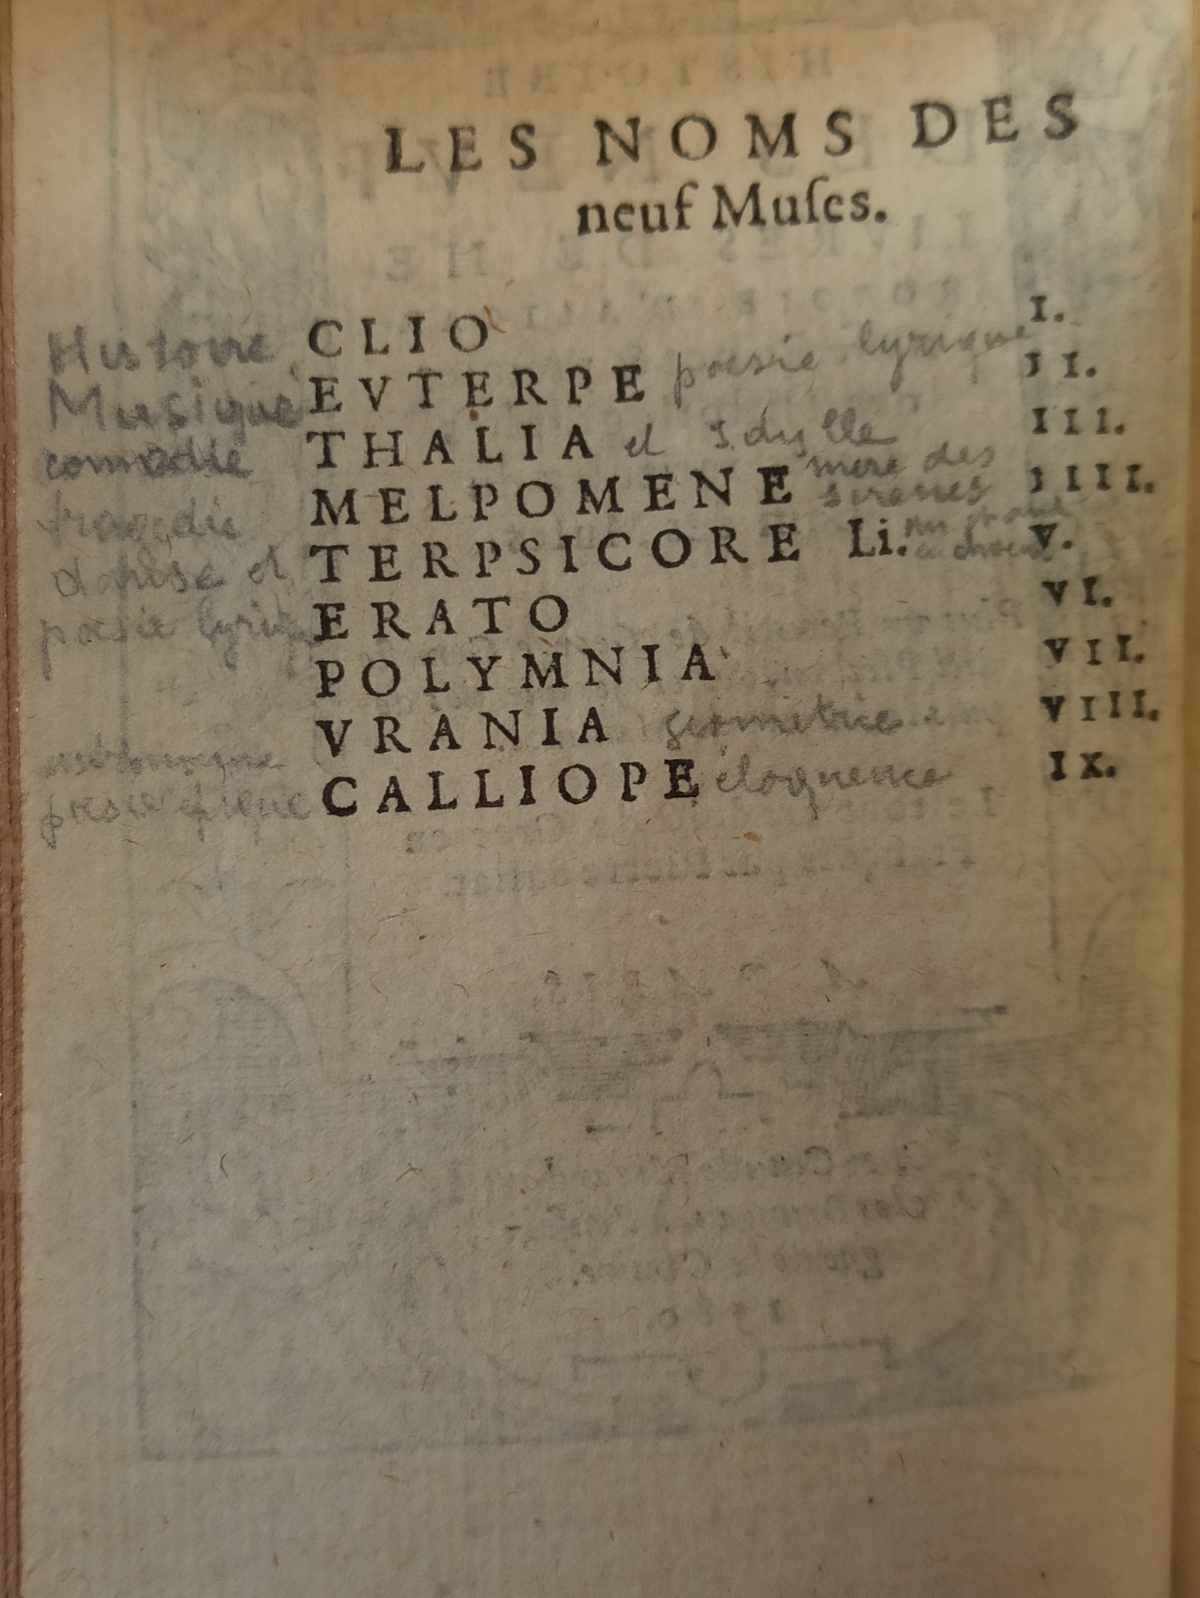 LES NOMS DES
neuf Muſes.
Histoire CLIO I.
Musique EVTERPE poesie lyrique II.
comédie THALIA et Idylle III.
tragédie MELPOMENE mère des sirènes IIII.
danse et TERPSICORE Li. V.
poesie lyrique ERATO VI.
POLYMNIA VII.
VRANIA geometrie VIII.
astronomie
poesie épique CALLIOPE eloquence IX.